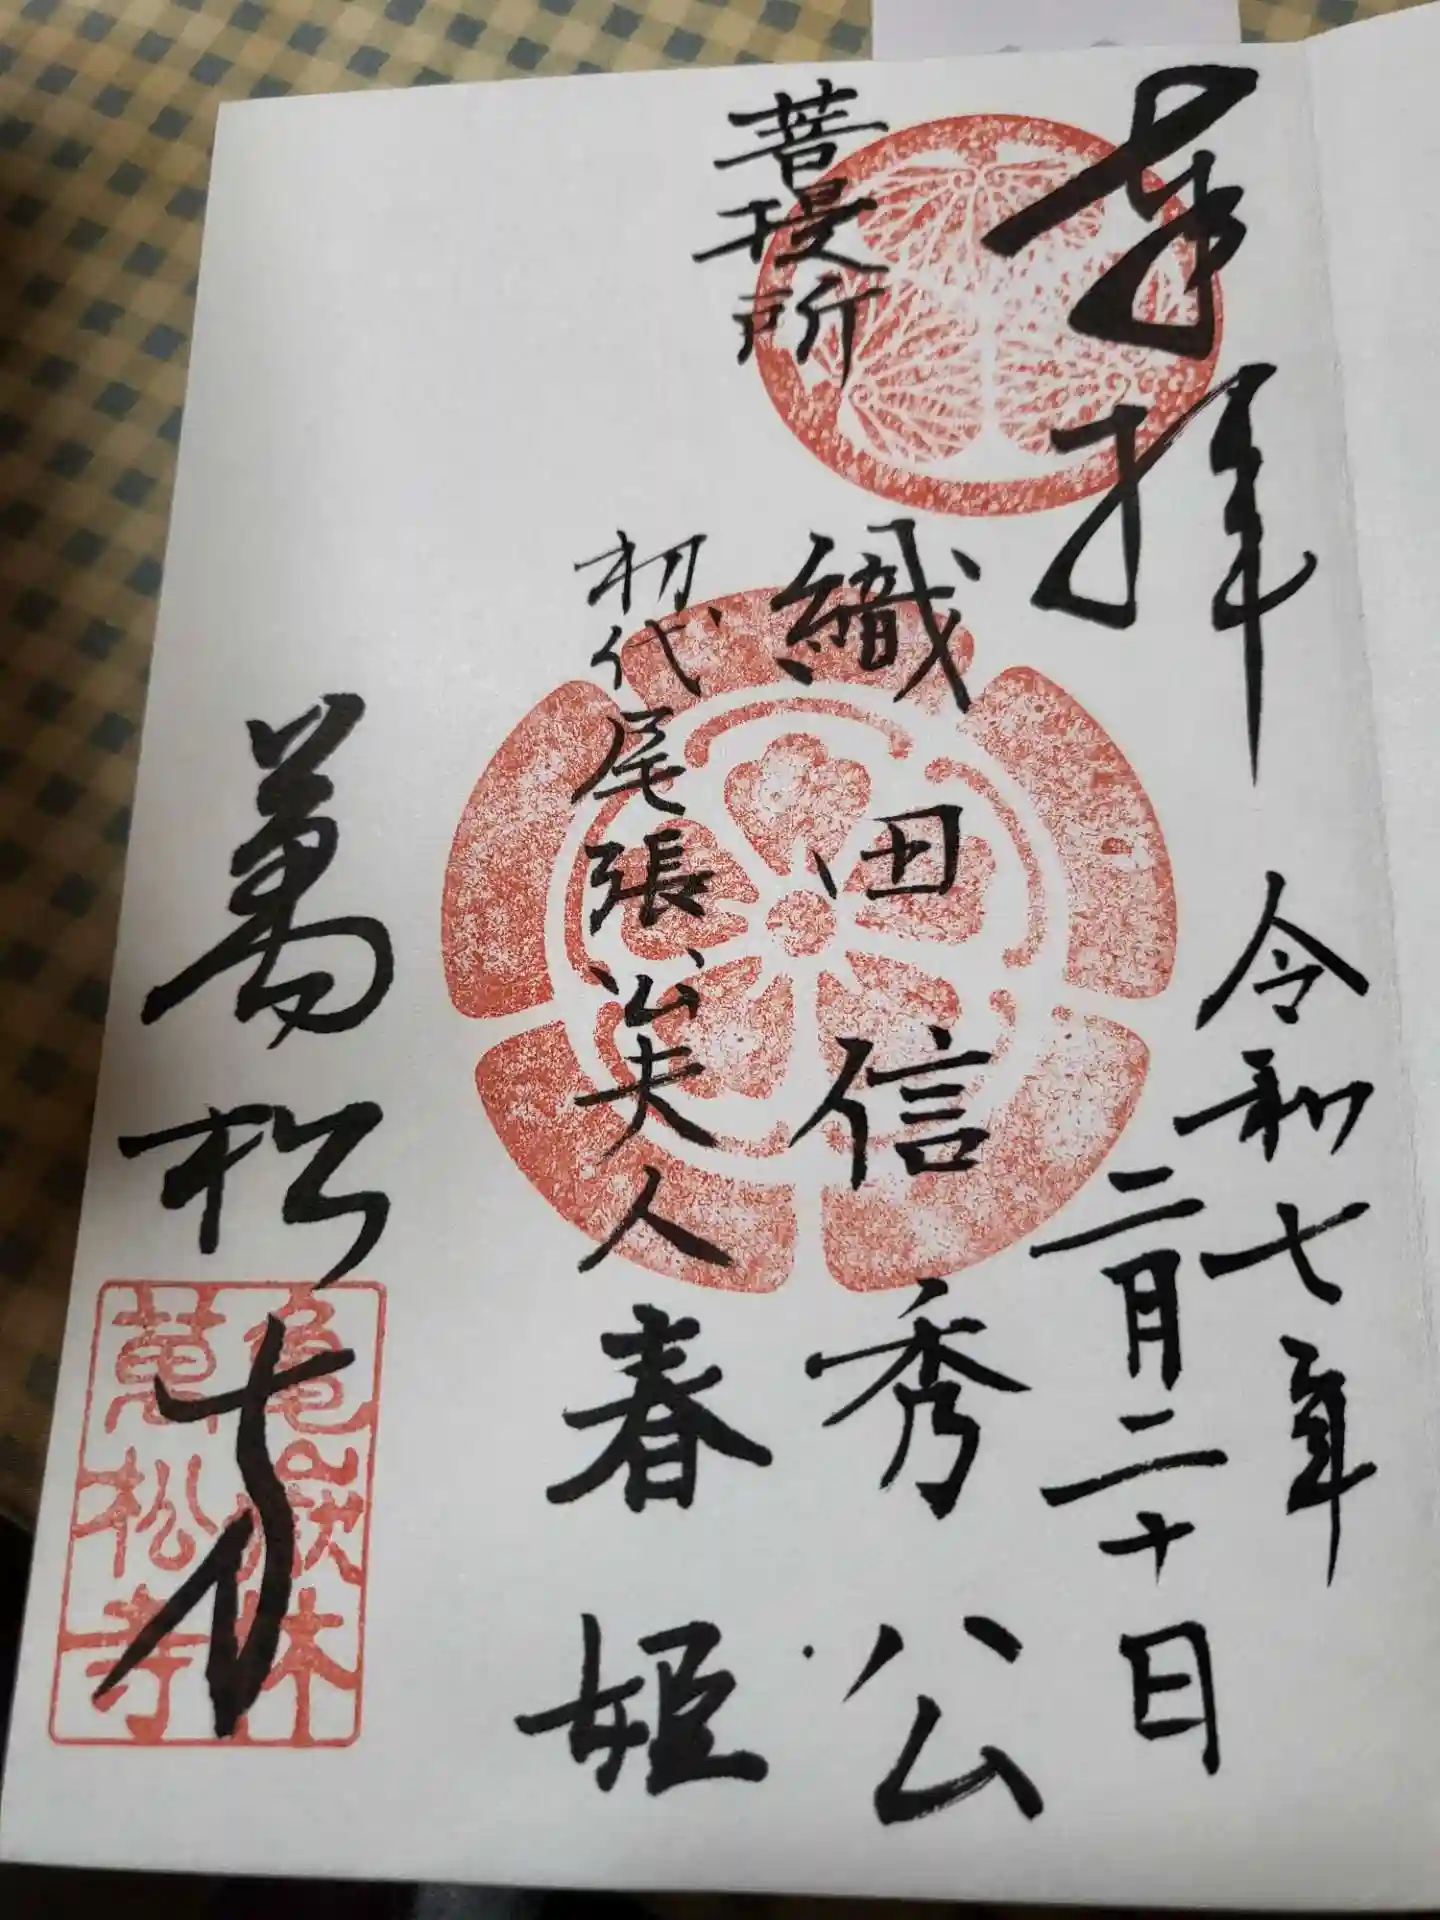 奉拝
令和七年
二月二十日
菩提所
織田信秀公
初代尾張公夫人春姫
萬松寺
亀嶽林
萬松寺